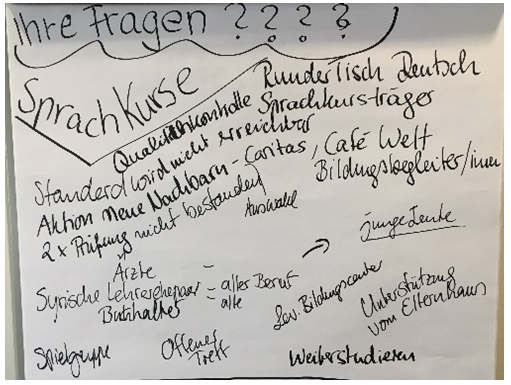 Ihre Fragen ? ? ? ?
Sprachkurse
Runder Tisch Deutsch
Qualitätskontrolle Sprachkursträger
Standard wird nicht erreichbar
Aktion neue Nachbarn - Caritas, Café Welt
Bildungsbegleiter/innen
2 x Prüfung nicht bestanden
Auswahl
junge Leute
Ärzte
Syrische Lehrerehepaar = alter Beruf
alte
Buchhalter
Lev. Bildungscenter
Unterstützung
vom Elternhaus
Spielgruppe
Offener
Treff
Weiterstudieren